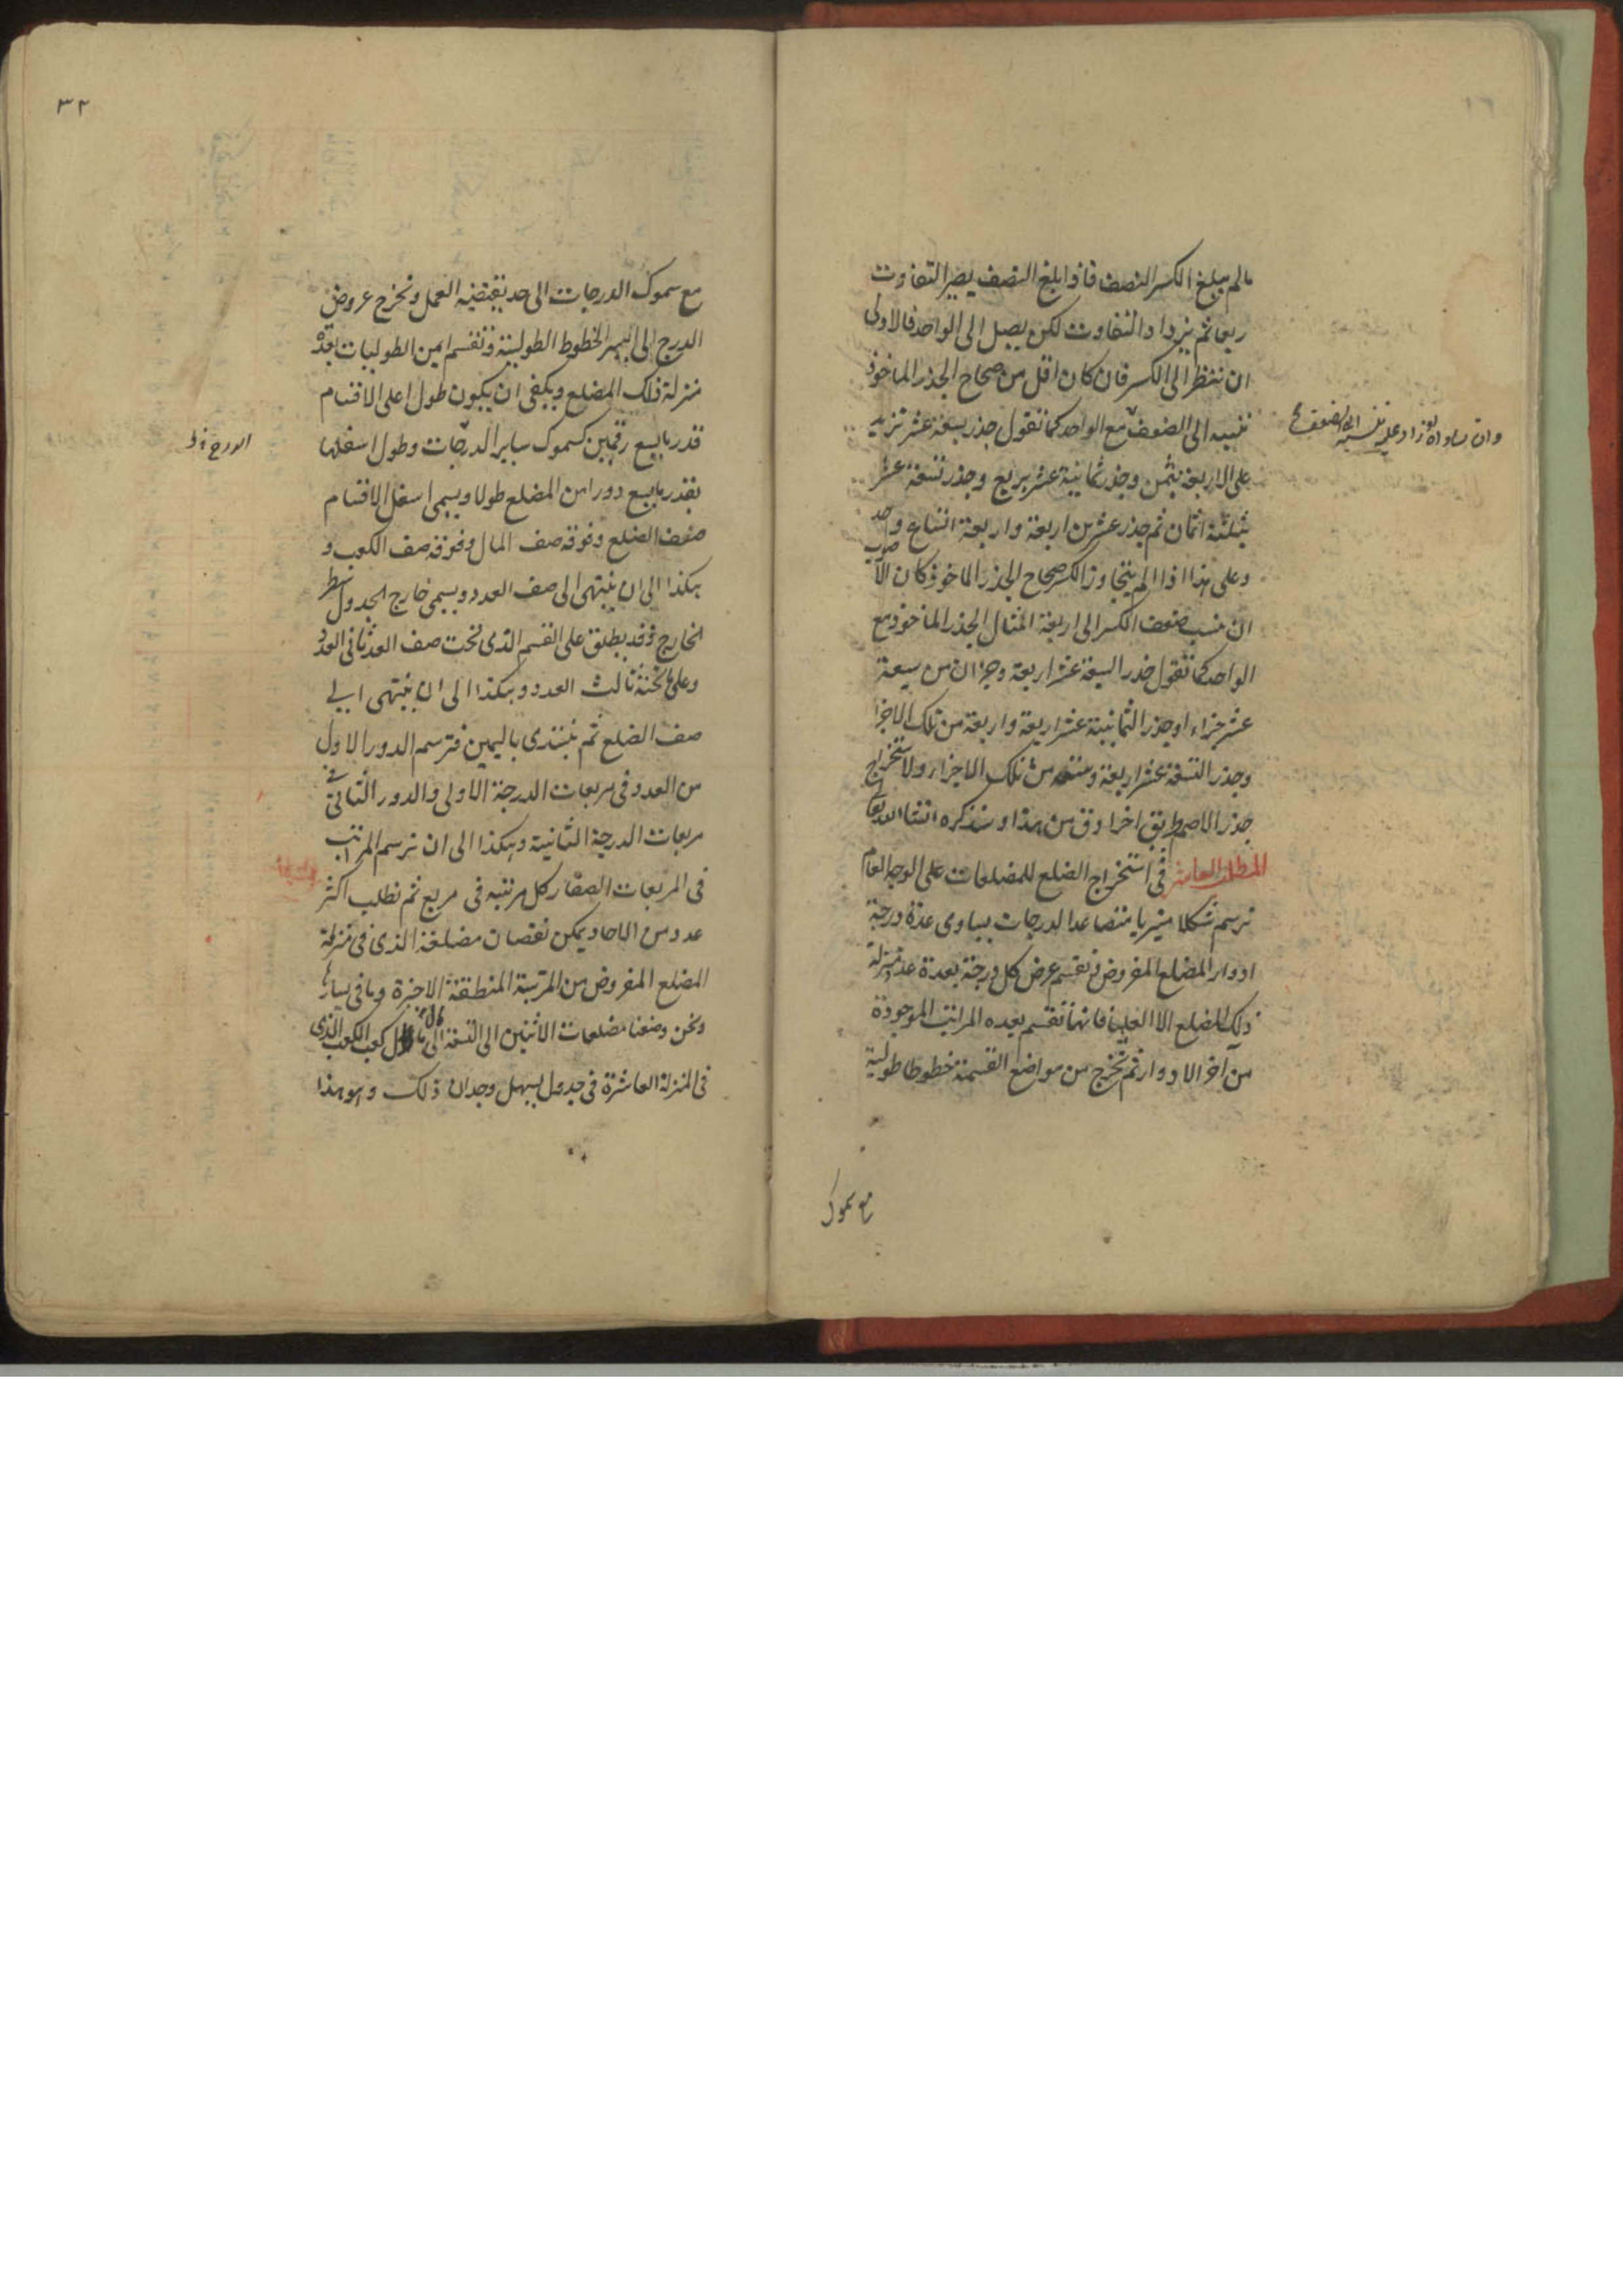 مالم يبلغ الكسر النصف فاذا بلغ النصف يصير التفاوت
ربعا ثم يزداد التفاوت لكن يصل الى الواحد فالاولى
ان ننظر الى الكسر فان كان اقل من صحاح الجذر الماخوذ
ننسبه الى الضعف مع الواحد كما نقول جذر سبعة عشر تزيد
على الاربعة بثمن وجذر ثمانية عشر بربع وجذر تسعة عشر
بثلثة اثمان ثم جذر عشرين اربعة واربعة اتساع واحد
وعلى هذا اذا لم يتجاوز الكسر صحاح الجذر الماخوذ كان الاصوب
ان ينسب ضعف الكسر الى اربعة امثال الجذر الماخوذ مع
الواحد كما نقول جذر السبعة عشر اربعة وجزان من سبعة
عشر جزاء وجذر الثمانية عشر اربعة واربعة من تلك الاجزا
وجذر التسعة عشر اربعة وستة من تلك الاجزاء ولاستخراج
جذر الاصم طريق اخر ادق من هذا وسنذكره انشاالله تعالى
المطلب العاشر فى استخراج الضلع للمضلعات على الوجه العام
نرسم شكلا منبريا متصاعد الدرجات يساوى عدة درجة
ادوار المضلع المفروض ونقسم عرض كل درجة بعدة عدد منزلة
ذلك المضلع الا العليا فانها تقسم بعده المراتب الموجودة
من آخر الادوار ثم نخرج من مواضع القسمة خطوطا طولية
مع سموك
وان ساواه او زاد عليه ننسبه الى الضعف
٣٢
مع سموك الدرجات الى حد يقتضيه العمل ونخرج عروض
الدرج الى ايسر الخطوط الطولية ونقسم ايمن الطوليات بعدة
منزلة ذلك المضلع ويكفى ان يكون طول اعلى الاقسام
قدر ما يسع رقمين كسموك ساير الدرجات وطول اسفلها
بقدر ما يسع دورا من المضلع طولا ويسمى اسفل الاقسام
صف الضلع وفوقه صف المال وفوقه صف الكعب و
هكذا الى ان ينتهى الى صف العدد ويسمى خارج الجدول سطر
الخارج وقد يطلق على القسم الذى تحت صف العدد ثانى العدد
وعلى ما تحته ثالث العدد وهكذا الى ان ينتهى الى
صف الضلع ثم نبتدى باليمين فنرسم الدور الاول
من العدد فى مربعات الدرجة الاولى والدور الثانى فى
مربعات الدرجة الثانية وهكذا الى ان نرسم المراتب
فى المربعات الصغار كل مرتبه فى مربع ثم نطلب اكثر
عدد من الاحاد يمكن نقصان مضلعه الذى فى منزلة
المضلع المفروض من المرتبة المنطقة الاخيرة وما فى يسارها
ونحن وضعنا مضلعات الاثنين الى التسعة الى مال كعب الكعب الذى
فى المنزلة العاشرة فى جدول ليسهل وجدان ذلك وهو هذا